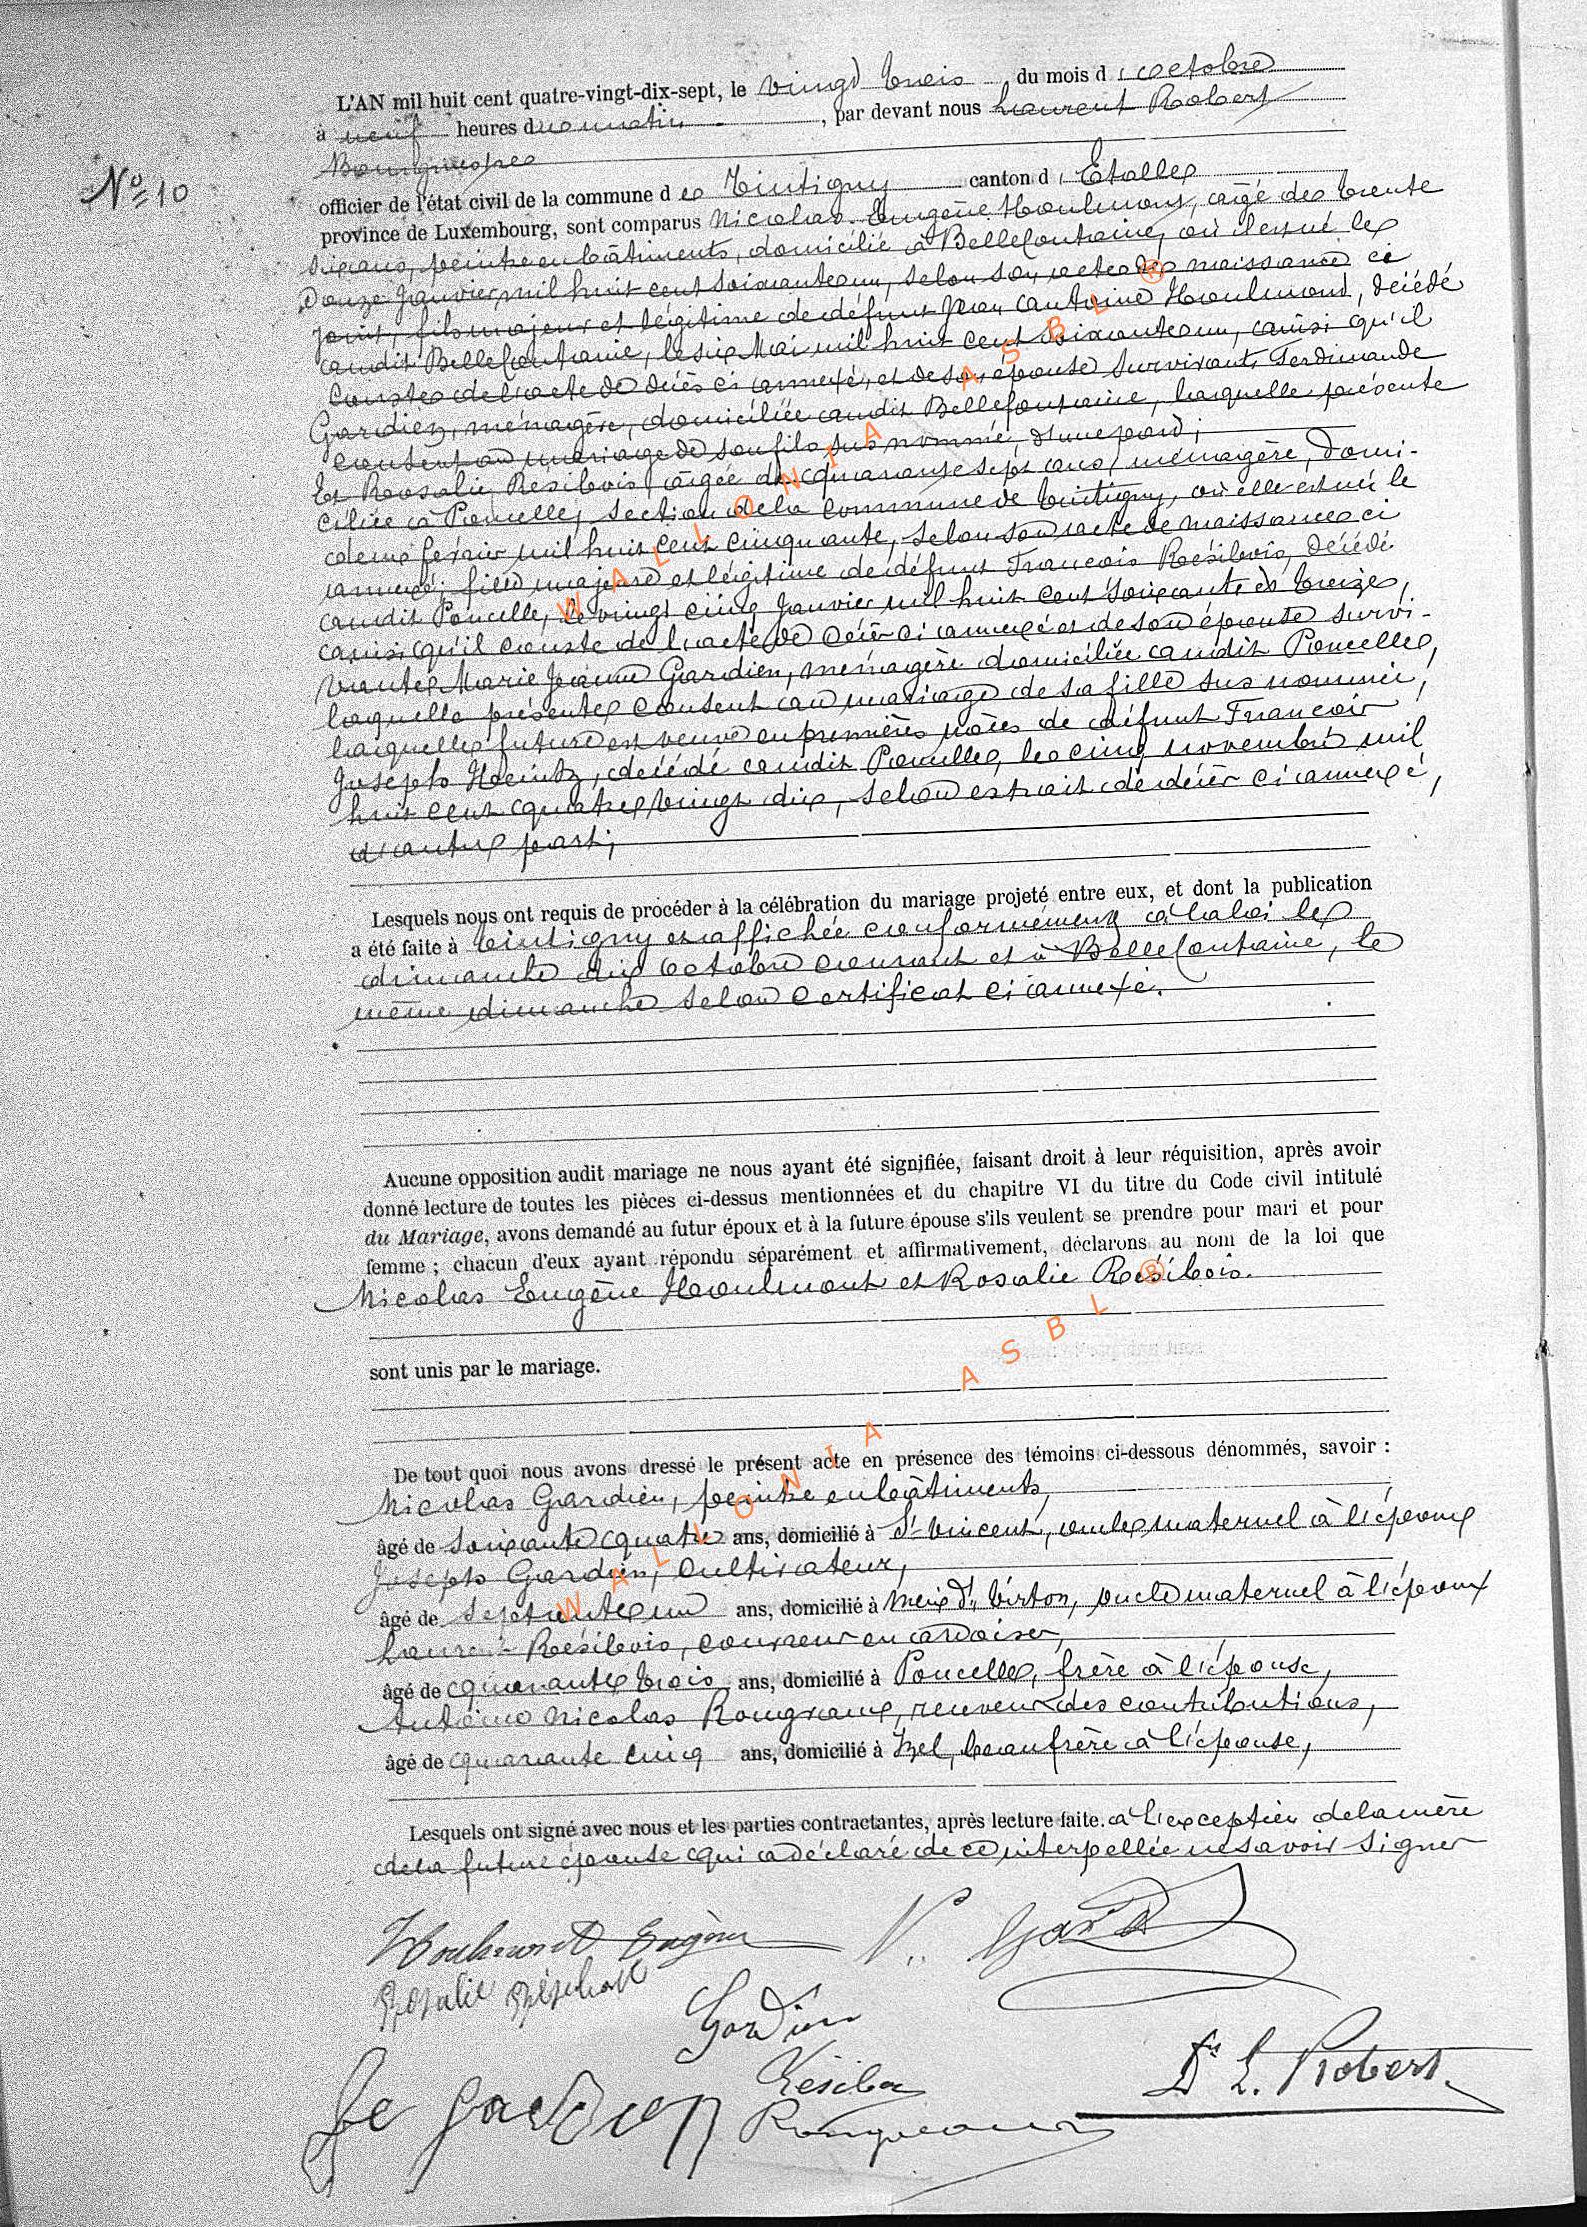 L'AN mil huit cent quatre-vingt-dix-sept, le vingt trois du mois d'octobre
à neuf heures du matin, par devant nous Laurent Robert
Bourgmestre
N° 10
officier de l'état civil de la commune de Tintigny canton d'Etalle
province de Luxembourg, sont comparus Nicolas Eugène Houlmont, âgé de trente
six ans, peintre en bâtiments, domicilié à Bellefontaine, où il est né le
douze janvier mil huit cent soixante un, selon son acte de naissance ci
joint, fils majeur et légitime de défunt Jean Antoine Houlmont, décédé
audit Bellefontaine, le six Mai mil huit cent soixante un, ainsi qu'il
conste de l'acte de décès ci annexé, et de son épouse survivante Ferdinande
Gardien, ménagère, domiciliée audit Bellefontaine, laquelle présente
consent au mariage de son fils sus nommé, d'une part;
Et Rosalie Résibois, âgée de quarante sept ans, ménagère, domi-
ciliée à Poncelle, section de la commune de Tintigny, où elle est née le
deux février mil huit cent cinquante, selon son acte de naissance ci
annexé; fille majeure et légitime de défunt François Résibois, décédé
audit Poncelle, le vingt cinq janvier mil huit cent soixante et treize,
ainsi qu'il conste de l'acte de décès ci annexé et de son épouse survi-
vante Marie Jeanne Gardien, ménagère domiciliée audit Poncelle,
laquelle présente consent au mariage de sa fille sus nommée,
laquelle future est veuve en premières noces de défunt François
Joseph Heintz, décédé audit Poncelle, le cinq novembre mil
huit cent quatre vingt dix, selon extrait de décès ci annexé,
d'autre part;
Lesquels nous ont requis de procéder à la célébration du mariage projeté entre eux, et dont la publication
a été faite à Tintigny et affichée conformément à la loi le
dimanche dix octobre courant et à Bellefontaine, le
même dimanche selon certificat ci annexé.
Aucune opposition audit mariage ne nous ayant été signifiée, faisant droit à leur réquisition, après avoir
donné lecture de toutes les pièces ci-dessus mentionnées et du chapitre VI du titre du Code civil intitulé
du Mariage, avons demandé au futur époux et à la future épouse s'ils veulent se prendre pour mari et pour
femme; chacun d'eux ayant répondu séparément et affirmativement, déclarons au nom de la loi que
Nicolas Eugène Houlmont et Rosalie Résibois.
sont unis par le mariage.
De tout quoi nous avons dressé le présent acte en présence des témoins ci-dessous dénommés, savoir :
Nicolas Gardien, peintre en bâtiments,
âgé de soixante quatre ans, domicilié à St Vincent, oncle maternel à l'époux
Joseph Gardien, cultivateur,
âgé de septante un ans, domicilié à Meix dt Virton, oncle maternel à l'époux
Laurent Résibois, couvreur en ardoises,
âgé de quarante trois ans, domicilié à Poncelle, frère à l'épouse,
Antoine Nicolas Rongvaux, receveur des contributions,
âgé de quarante cinq ans, domicilié à Izel, beau frère à l'épouse,
Lesquels ont signé avec nous et les parties contractantes, après lecture faite. à l'exception de la mère
de la future épouse qui a déclaré de ce interpellée ne savoir signer
Houlmont Eugène N. Gardien
Rosalie Résibois
Gardien
Je Gardien Résibois Dr L. Robert
Rongvaux
WALLONIA ASBL ®
WALLONIA ASBL ®